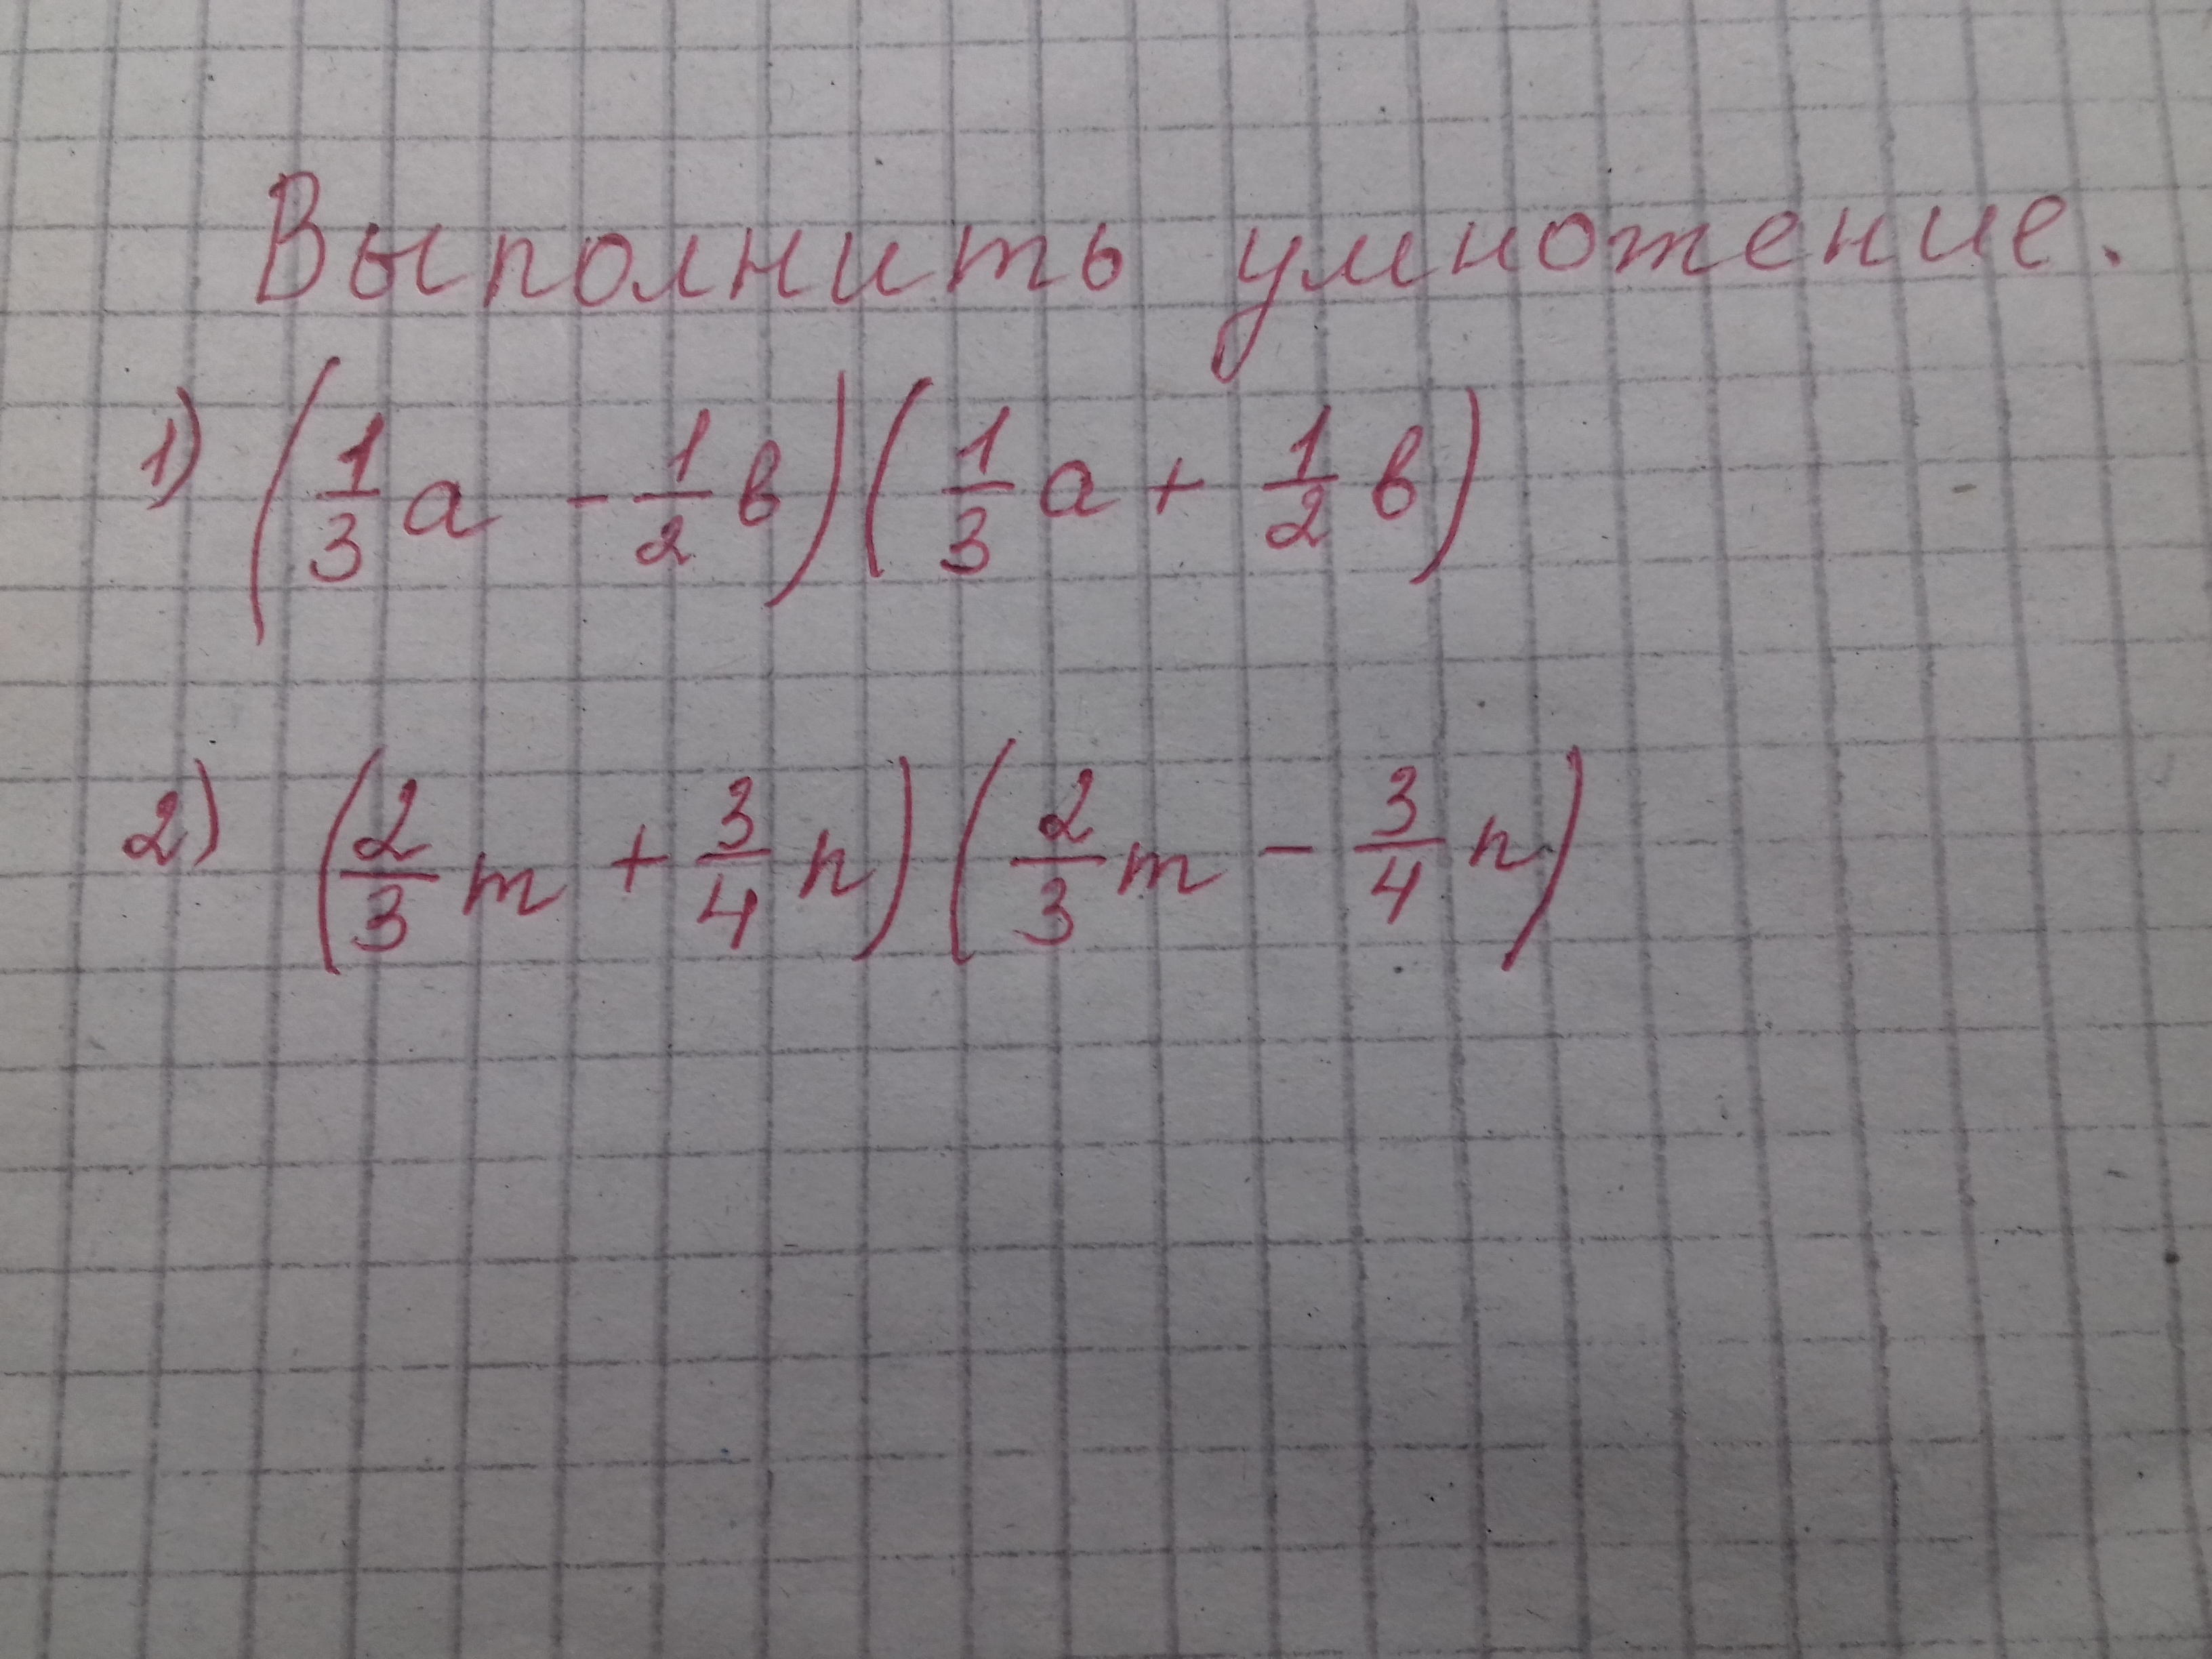 Выполнить умножение.
1) (1/3 a - 1/2 в)(1/3 a + 1/2 в)
2) (2/3 m + 3/4 n)(2/3 m - 3/4 n)